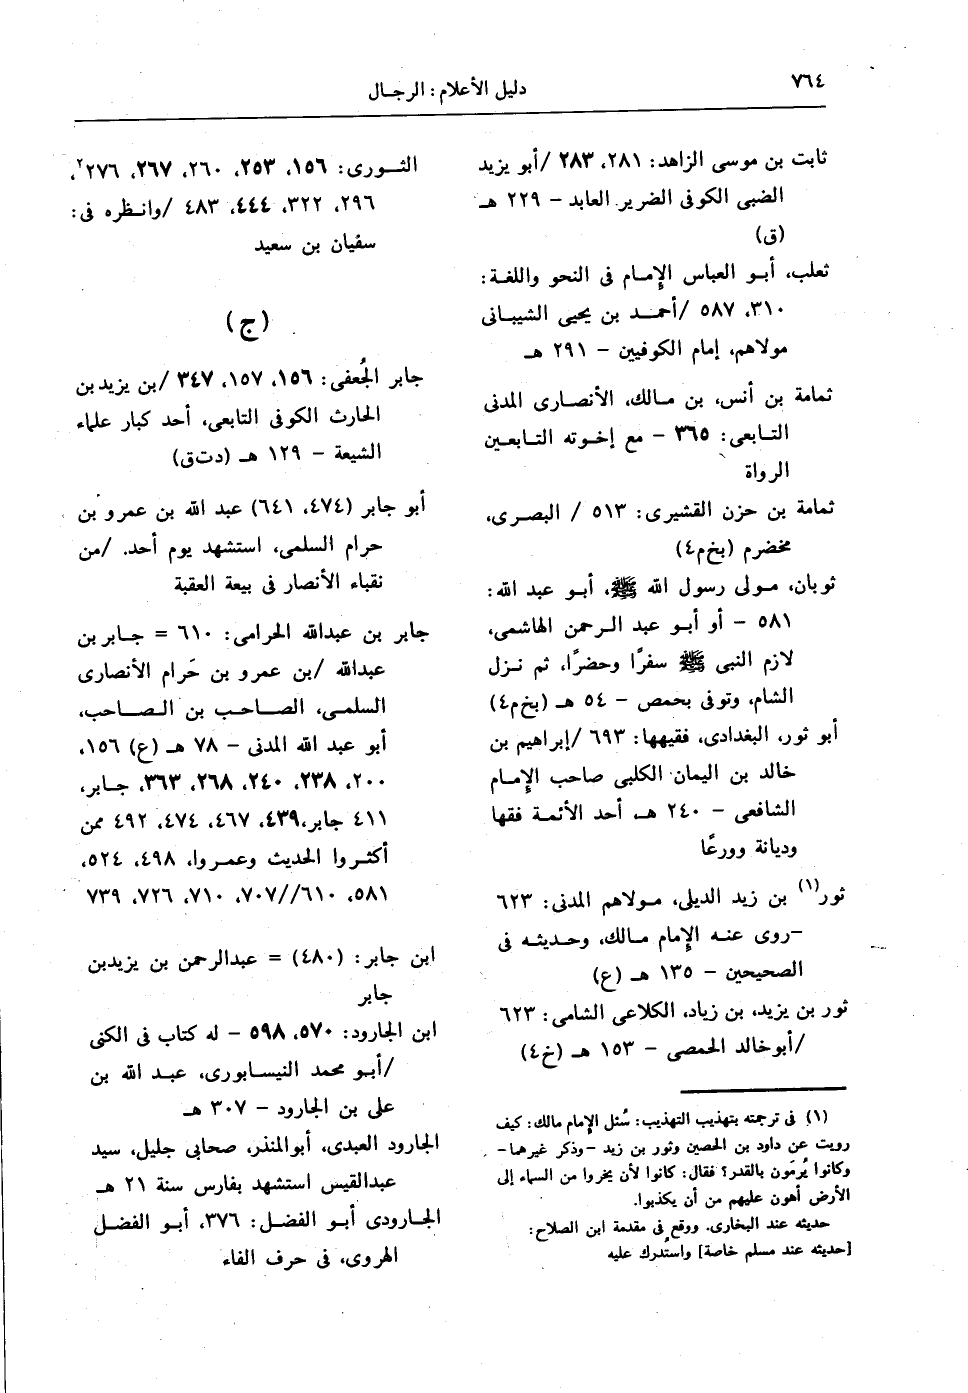 ٧٦٤
دليل الأعلام : الرجـال
ثابت بن موسى الزاهد: ٢٨١، ٢٨٣ /أبو يزيد
الضبى الكوفى الضرير العابد - ٢٢٩ هـ
(ق)
ثعلب، أبـو العباس الإمـام فى النحو واللغـة:
٣١٠، ٥٨٧ /أحمـد بن يحيى الشيبـانى
مولاهم، إمام الكوفيين - ٢٩١ هـ
ثمامة بن أنس، بن مـالك، الأنصـارى المدنى
التـابعى: ٣٦٥ - مع إخـوته التـابعـين
الرواة
ثمامة بن حزن القشيرى: ٥١٣ / البصـرى،
مخضرم (بخ م٤)
ثوبان، مـولى رسول الله ﷺ، أبـو عبد الله:
٥٨١ - أو أبـو عبد الـرحمن الهاشمى،
لازم النبى ﷺ سفرًا وحضرًا، ثم نـزل
الشام، وتوفى بحمص - ٥٤ هـ (بخ م٤)
أبو ثور، البغدادى، فقيهها: ٦٩٣ /إبراهيم بن
خالد بن اليمان الكلبى صاحب الإمـام
الشافعى - ٢٤٠ هـ، أحد الأئمـة فقها
وديانة وورعًا
ثور(١) بن زيد الديلى، مـولاهم المدنى: ٦٢٣
-روى عنـه الإمام مـالك، وحـديثـه فى
الصحيحين - ١٣٥ هـ (ع)
ثور بن يزيد، بن زياد، الكلاعى الشامى: ٦٢٣
/أبوخالد الحمصى - ١٥٣ هـ (خ٤)
(١) فى ترجمته بتهذيب التهذيب: سُئل الإمام مالك: كيف
رويت عن داود بن الحصين وثور بن زيد -وذكر غيرهما-
وكانوا يُرمَون بالقدر؟ فقال: كانوا لأن يخروا من السماء إلى
الأرض أهون عليهم من أن يكذبوا.
حديثه عند البخارى. ووقع فى مقدمة ابن الصلاح:
[حديثه عند مسلم خاصة] واستُدرك عليه
الثــورى: ١٥٦، ٢٥٣، ٢٦٠، ٢٦٧، ٢٧٦٢،
٢٩٦، ٣٢٢، ٤٤٤، ٤٨٣ /وانـظره فى:
سفيان بن سعيد
(ج)
جابر الجُعفى: ١٥٦، ١٥٧، ٣٤٧ /بن يزيدبن
الحارث الكوفى التابعى، أحد كبار علماء
الشيعة - ١٢٩ هـ (دت ق)
أبو جابر (٤٧٤، ٦٤١) عبد الله بن عمرو بن
حرام السلمى، استشهد يوم أحد. /من
نقباء الأنصار فى بيعة العقبة
جابر بن عبدالله الحرامى: ٦١٠ = جـابر بن
عبدالله /بن عمرو بن حَرام الأنصارى
السلمى، الصـاحـب بن الـصـاحب،
أبو عبد الله المدنى - ٧٨ هـ (ع) ١٥٦،
٢٠٠، ٢٣٨، ٢٤٠، ٢٦٨، ٣٦٣، جـابر،
٤١١ جابر،٤٣٩، ٤٦٧، ٤٧٤، ٤٩٢ ممن
أكثـروا الحديث وعمـروا، ٤٩٨، ٥٢٤،
٥٨١، ٦١٠//٧٠٧، ٧١٠، ٧٢٦، ٧٣٩
ابن جابر: (٤٨٠) = عبدالرحمن بن يزيدبن
جابر
ابن الجارود: ٥٧٠، ٥٩٨ - له كتاب فى الكنى
/أبـو محمد النيسابورى، عبـد الله بن
على بن الجارود - ٣٠٧ هـ
الجارود العبدى، أبوالمنذر، صحابى جليل، سيد
عبدالقيس استشهد بفارس سنة ٢١ هـ
الجـارودى أبـو الفضل: ٣٧٦، أبـو الفضـل
الهروى، فى حرف الفاء